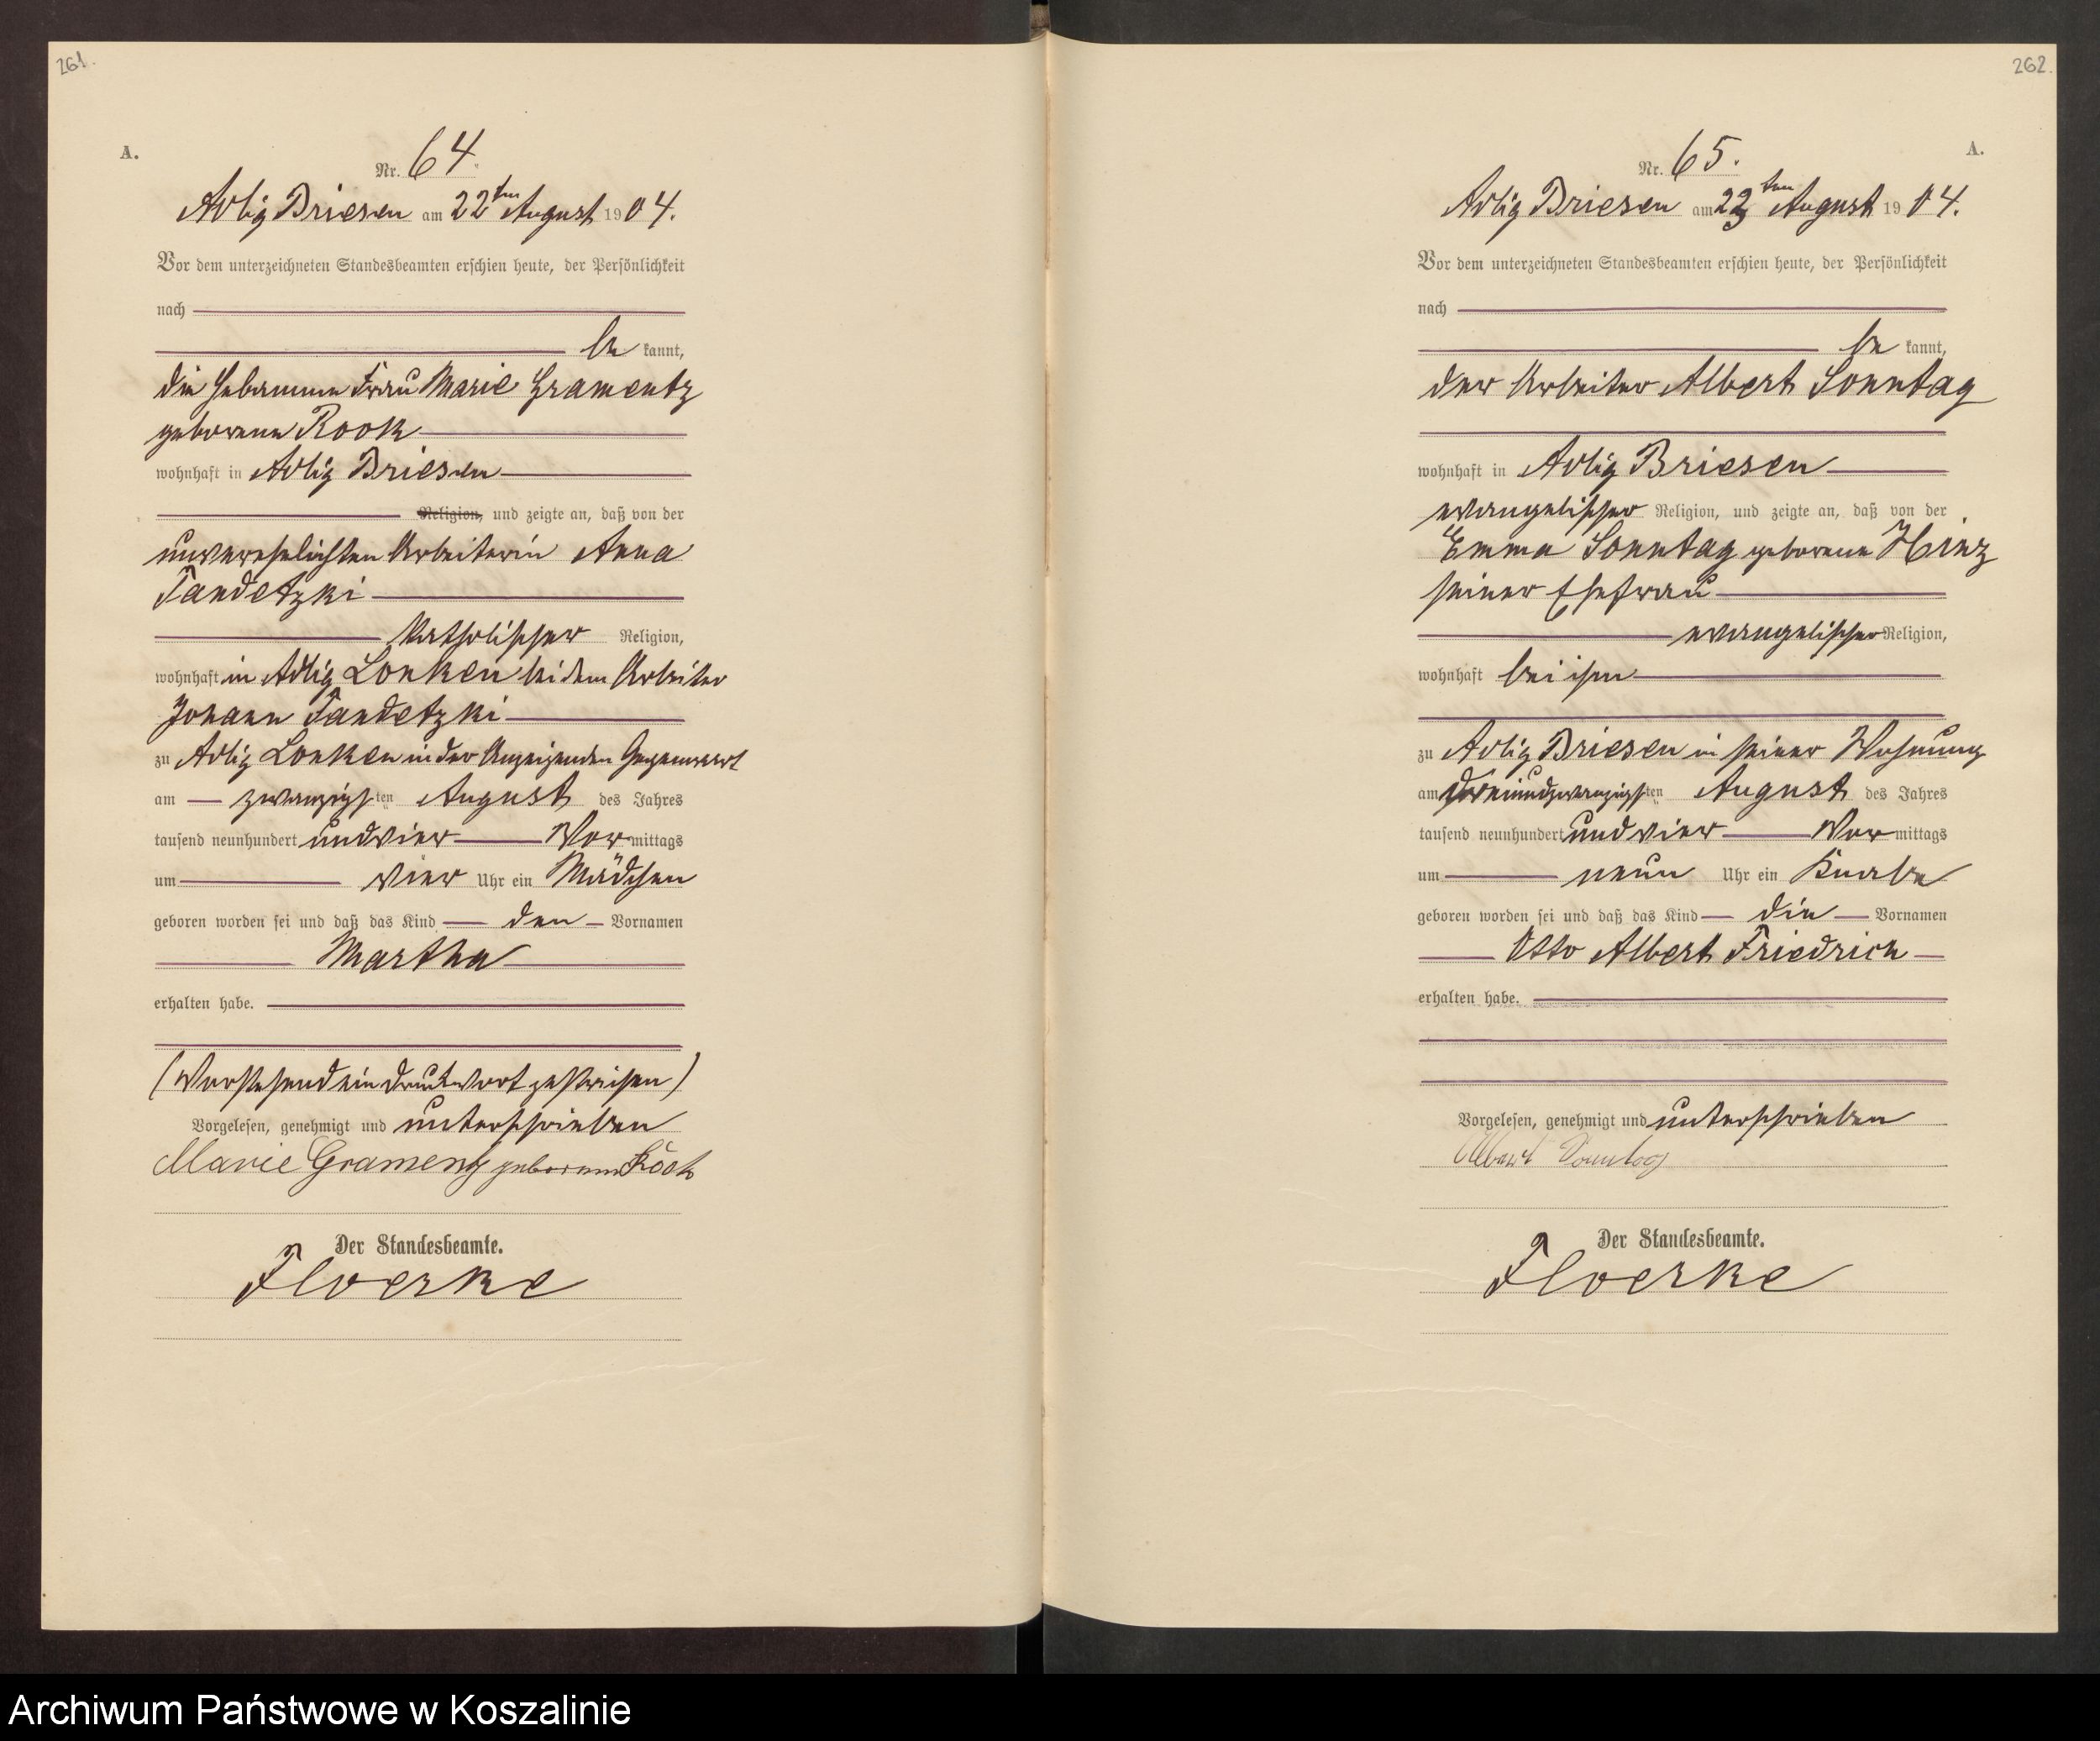 261.
A.
Nr. 64.
Adlig Briesen am 22ten August 1904.
Vor dem unterzeichneten Standesbeamten erschien heute, der Persönlichkeit
nach
be kannt,
die Hebamme Frau Marie Gramentz
geborene Rook
wohnhaft in Adlig Briesen
Religion, und zeigte an, daß von der
unverehelichten Arbeiterin Anna
Tandetzki
katholischer Religion,
wohnhaft in Adlig Lonken bei dem Arbeiter
Johann Tandetzki
zu Adlig Lonken in der Anzeigenden Gegenwart
am zwanzigsten August des Jahres
tausend neunhundert undvier Vormittags
um vier Uhr ein Mädchen
geboren worden sei und daß das Kind den Vornamen
Martha
erhalten habe.
(Vorstehend ein Druckwort gestrichen)
Vorgelesen, genehmigt und unterschrieben
Marie Gramentz geborene
Der Standesbeamte.
Floerke
262.
A.
Nr. 65.
Adlig Briesen am 23ten August 1904.
Vor dem unterzeichneten Standesbeamten erschien heute, der Persönlichkeit
nach
be kannt,
der Arbeiter Albert Sonntag
wohnhaft in Adlig Briesen
evangelischer Religion, und zeigte an, daß von der
Emma Sonntag geborene Hinz
seiner Ehefrau
evangelischer Religion,
wohnhaft bei ihm
zu Adlig Briesen in seiner Wohnung
am dreiundzwanzigsten August des Jahres
tausend neunhundert undvier Vormittags
um neun Uhr ein Knabe
geboren worden sei und daß das Kind die Vornamen
Otto Albert Friedrich
erhalten habe.
Vorgelesen, genehmigt und unterschrieben
Albert Sonntag
Der Standesbeamte.
Floerke
Archiwum Państwowe w Koszalinie